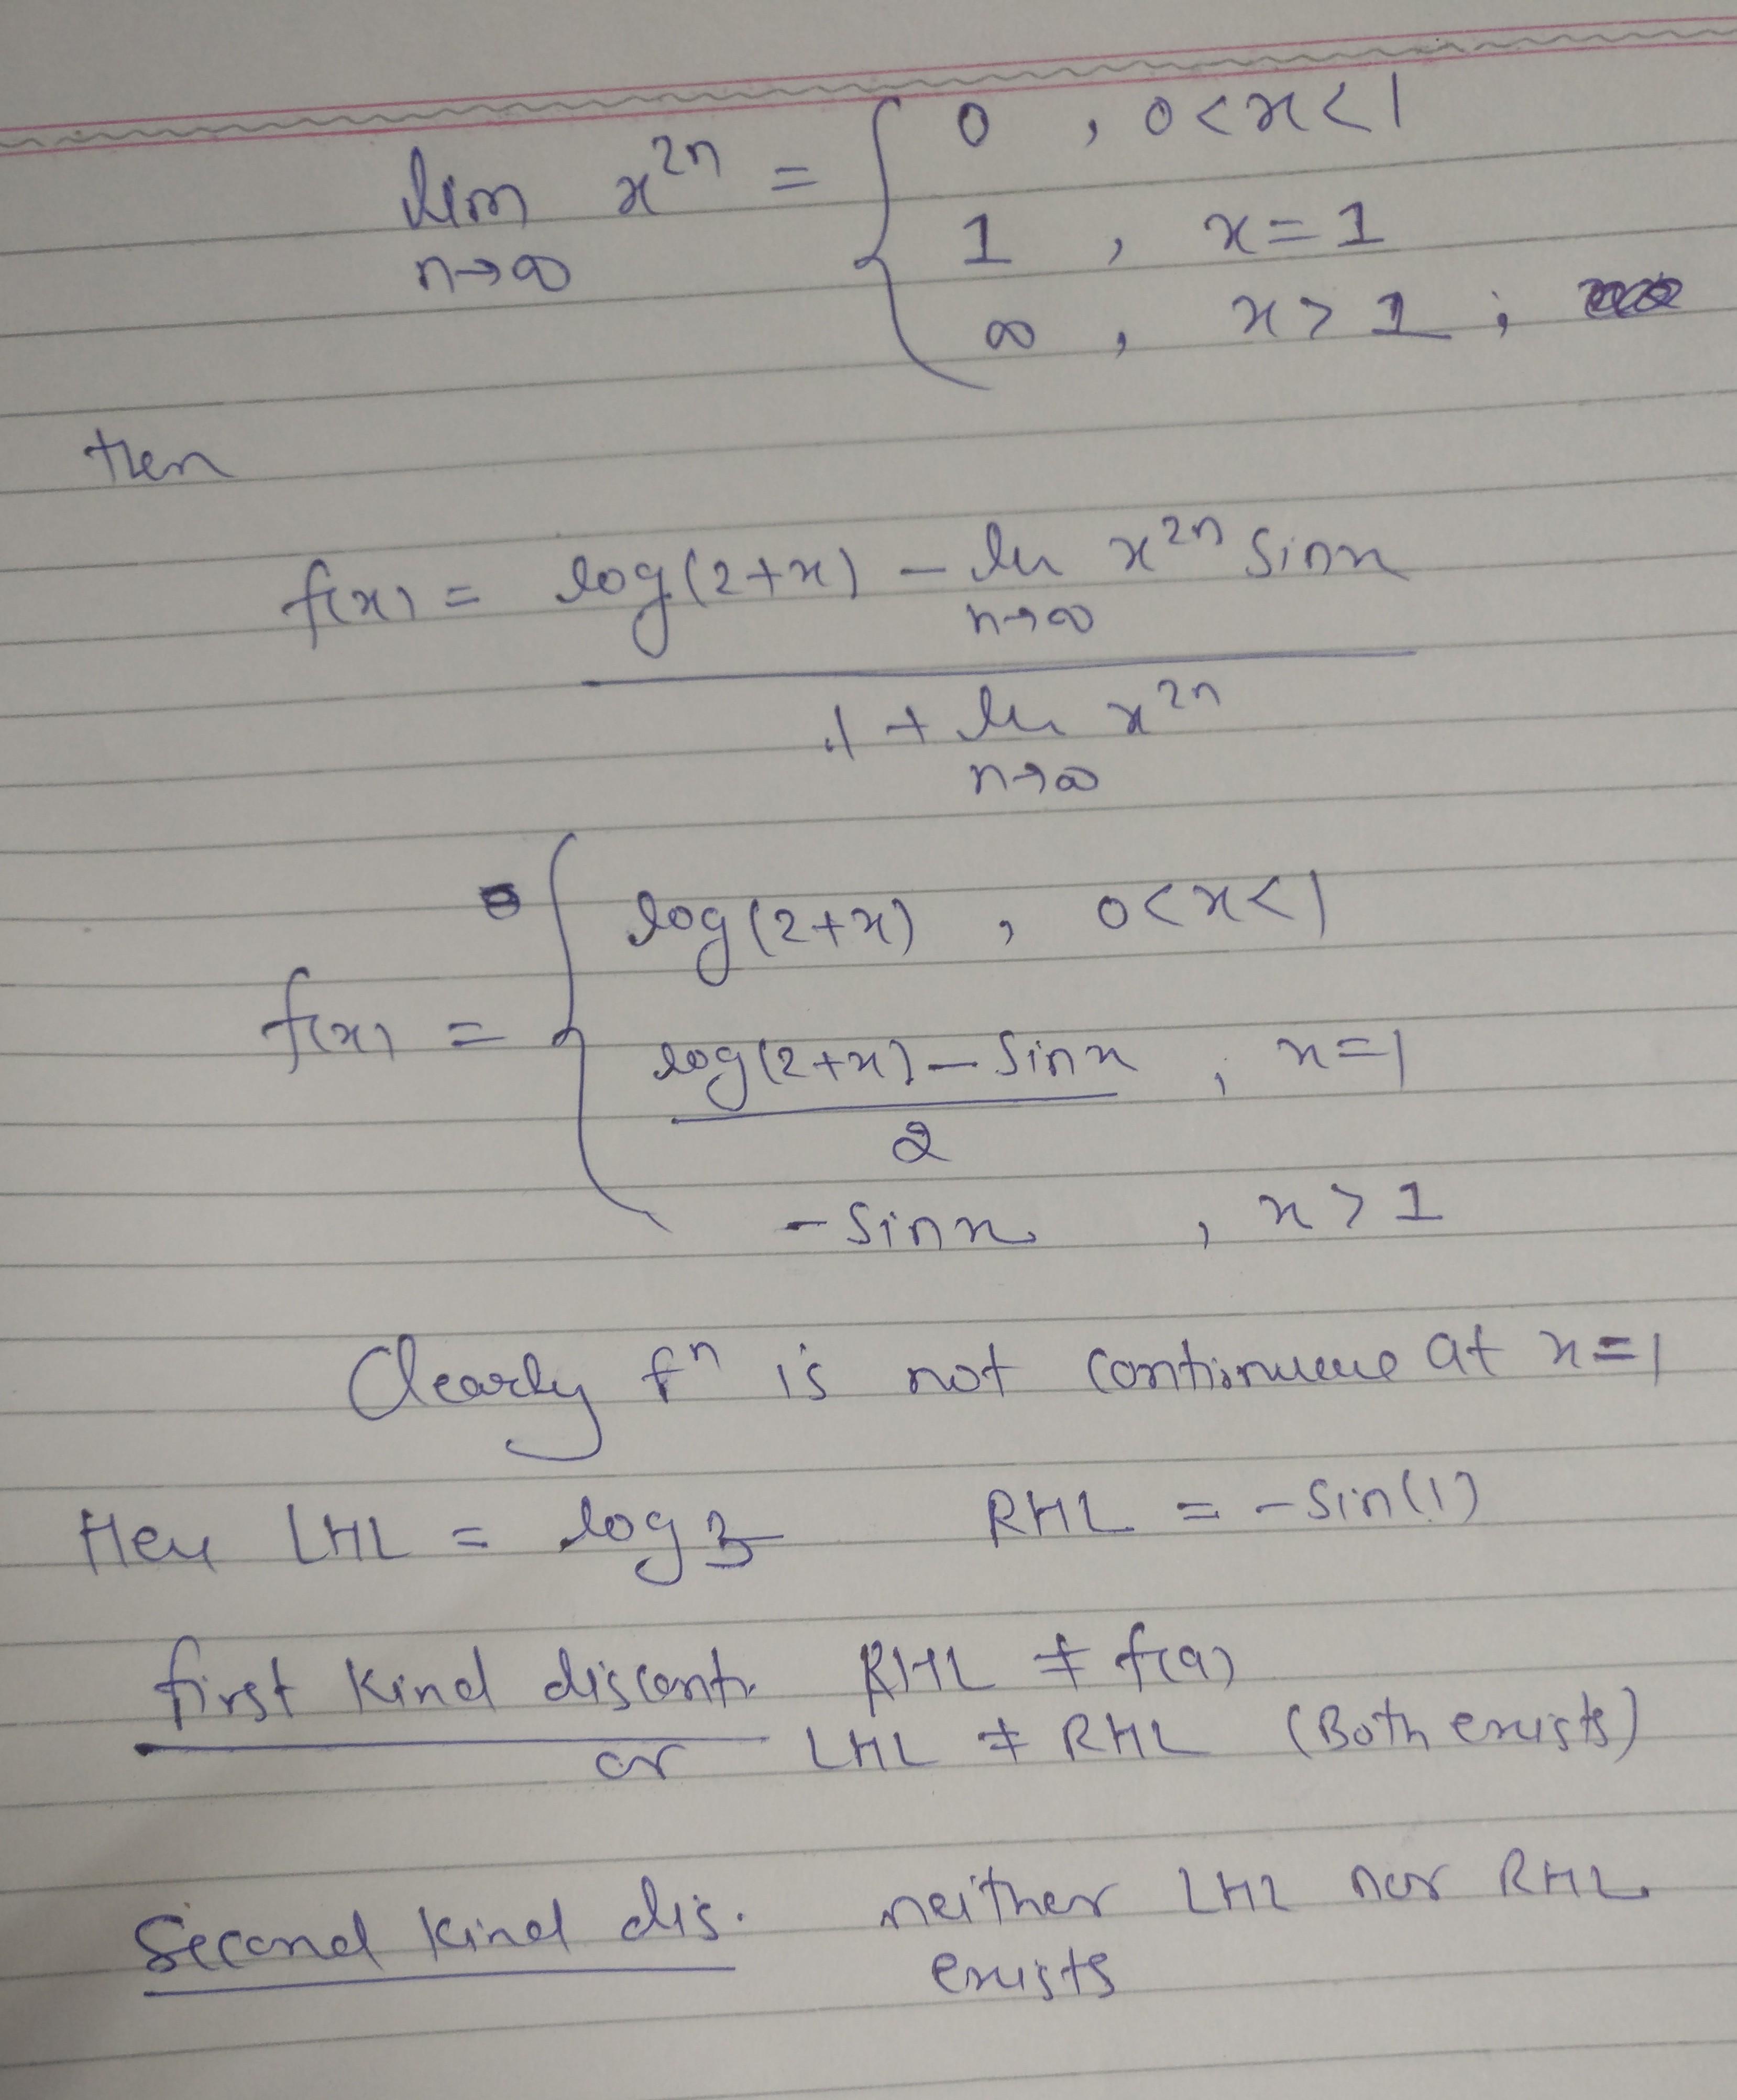 lim x^{2n} = { 0 , 0<x<1
n→∞ 1 , x=1
∞ , x>1 ;
then
f(x) = log(2+x) - lim x^{2n} sinx
n→∞
1 + lim x^{2n}
n→∞
log(2+x) , 0<x<1
f(x) = { log(2+x) - sinx , x=1
2
-sinx , x>1
Clearly f^n is not at x=1
Here LHL = log 3 RHL = -sin(1)
first kind discont. RHL ≠ f(a)
or LHL ≠ RHL (Both exists)
Second kind dis. neither LHL nor RHL
exists